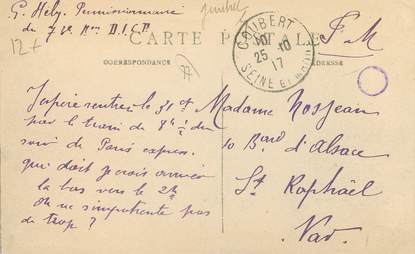 G. Hely Permissionnaire
du 7 8e
12+
CARTE POSTALE
CORRESPONDANCE
ADRESSE
COUBERT
10
25 10
17
SEINE ET
F. M
J'espère rentrer le 31 ct
par le train de 8h du
soir de Paris express.
qui doit je crois arriver
là bas vers le 2h
On ne s'impatiente pas
de trop ?
Madame Nosjean
10 Bard d'Alsace
St Raphaël
Var.